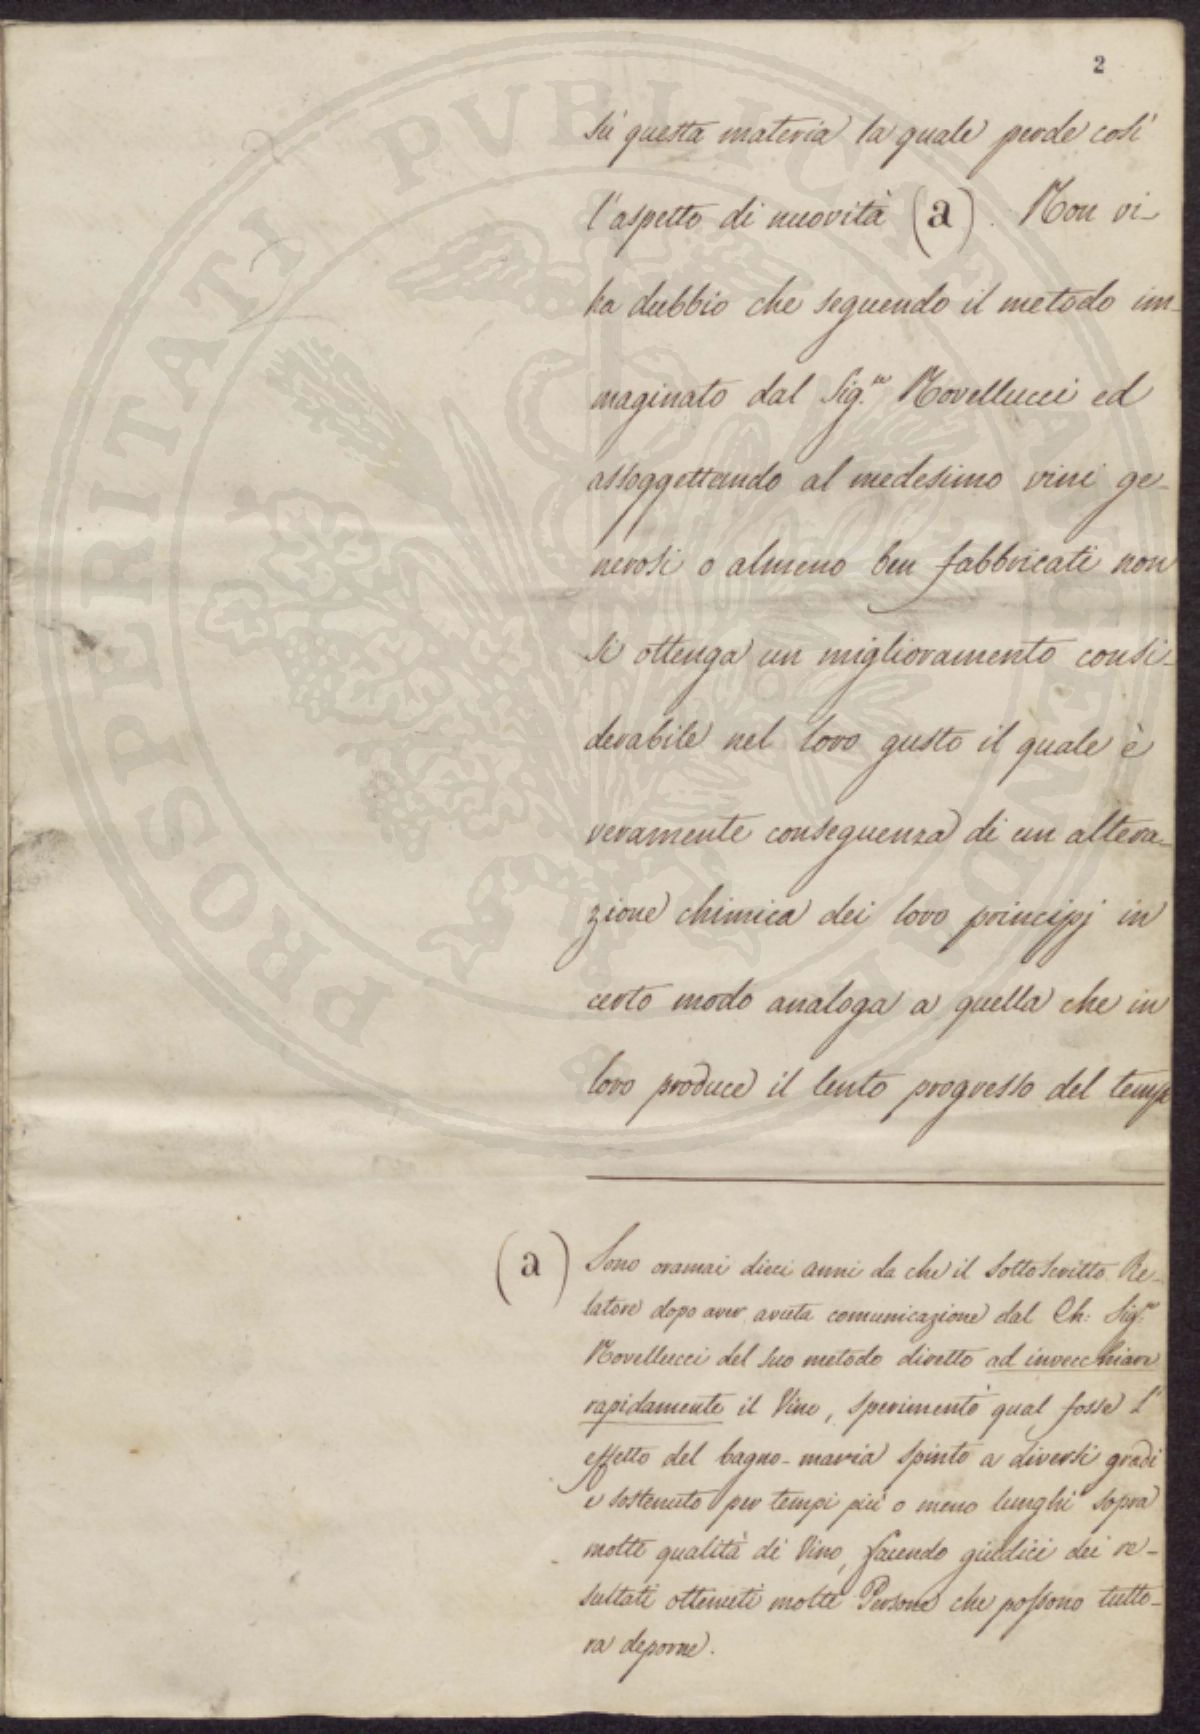 2
sù questa materia la quale perde così
l'aspetto di nuovità (a). Non vi
ha dubbio che seguendo il metodo im-
maginato dal Sig.re Novellucci ed
assoggettando al medesimo vini ge-
nerosi o almeno ben fabbricati non
si ottenga un miglioramento consi-
derabile nel loro gusto il quale è
veramente conseguenza di un altera-
zione chimica dei loro principj in
certo modo analoga a quella che in
loro produce il lento progresso del tempo
(a) Sono oramai dieci anni da che il sottoscritto Re-
latore dopo aver avuta comunicazione dal Ch: Sig.re
Novellucci del suo metodo diretto ad invecchiare
rapidamente il Vino, sperimentò qual fosse l'
effetto del bagno-maria spinto a diversi gradi
e sostenuto per tempi più o meno lunghi sopra
molte qualità di Vino, facendo giudici dei re-
sultati ottenuti molte Persone che possono tutto-
ra deporne.
PROSPERITATI PVBLICAE AVGENDAE